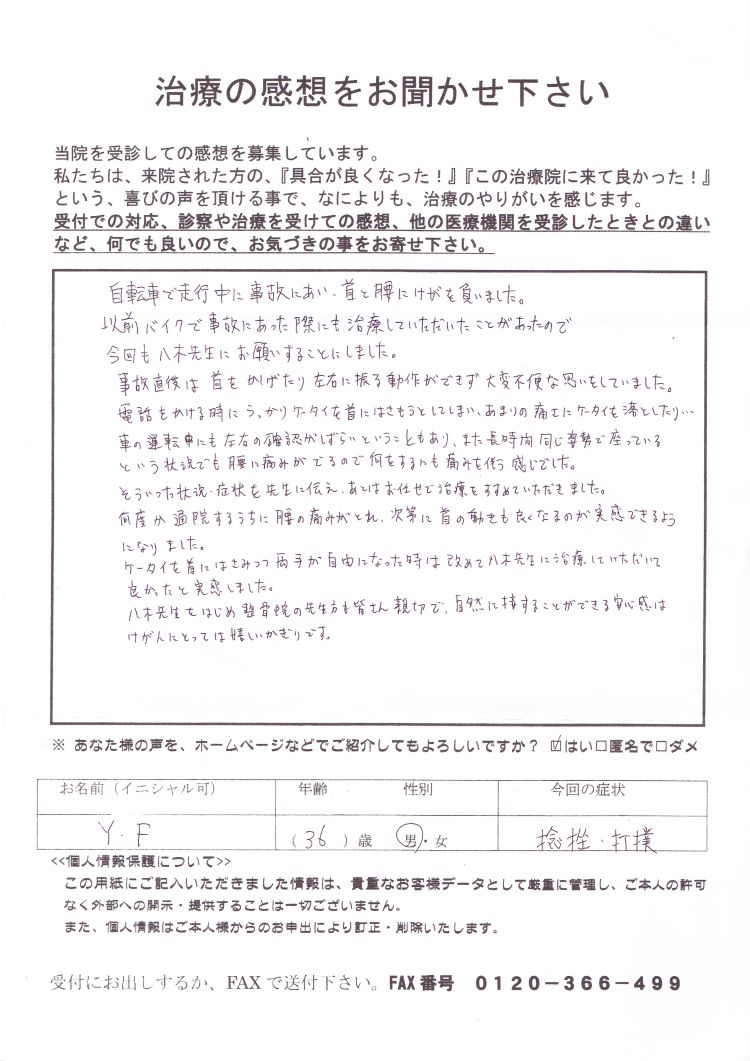 治療の感想をお聞かせ下さい
当院を受診しての感想を募集しています。
私たちは、来院された方の、『具合が良くなった！』『この治療院に来て良かった！』
という、喜びの声を頂ける事で、なによりも、治療のやりがいを感じます。
受付での対応、診察や治療を受けての感想、他の医療機関を受診したときとの違い
など、何でも良いので、お気づきの事をお寄せ下さい。
自転車で走行中に事故にあい、首と腰にけがを負いました。
以前バイクで事故にあった際にも治療していただいたことがあったので
今回も八木先生にお願いすることにしました。
事故直後は首をかしげたり左右に振る動作ができず大変不便な思いをしていました。
電話をかける時にうっかりケータイを首にはさもうとしてしまい、あまりの痛さにケータイを落としたり…
車の運転中にも左右の確認がしずらいということもあり、また長時間同じ姿勢で座っている
という状況でも腰に痛みがでるので何をするにも痛みを伴う感じでした。
そういった状況・症状を先生に伝え、あとはお任せで治療をすすめていただきました。
何度か通院するうちに腰の痛みがとれ、次第に首の動きも良くなるのが実感できるよう
になりました。
ケータイを首にはさみつつ両手が自由になった時は改めて八木先生に治療していただいて
良かったと実感しました。
八木先生をはじめ整骨院の先生方も皆さん親切で、自然に接することができる安心感は
けが人にとっては嬉しいかぎりです。
※ あなた様の声を、ホームページなどでご紹介してもよろしいですか？ ☑はい□匿名で□ダメ
お名前（イニシャル可） 年齢 性別 今回の症状
Y.F （36）歳 男・女 捻挫・打撲
<<個人情報保護について>>
この用紙にご記入いただきました情報は、貴重なお客様データとして厳重に管理し、ご本人の許可
なく外部への開示・提供することは一切ございません。
また、個人情報はご本人様からのお申出により訂正・削除いたします。
受付にお出しするか、FAXで送付下さい。FAX番号 0120－366－499